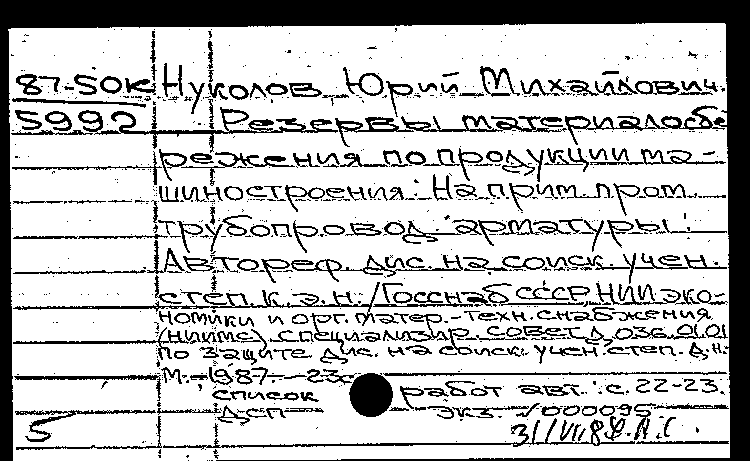 87-50к Нуколов Юрий Михайлович.
5992 Резервы материалосбе
режения по продукции ма-
шиностроения: На прим. пром.
трубопровод. арматуры:
Автореф. дис. на соиск. учен.
степ. к.э.н. /Госснаб СССР, НИИ эко-
номики и орг. матер.-техн. снабжения
(НИИМС), специализир. совет Д 036.01.01
по защите дис. на соиск. учен. степ. д.н.
М.-1987.-23с
список работ авт.: с. 22-23.
ДСП экз. №000095
5